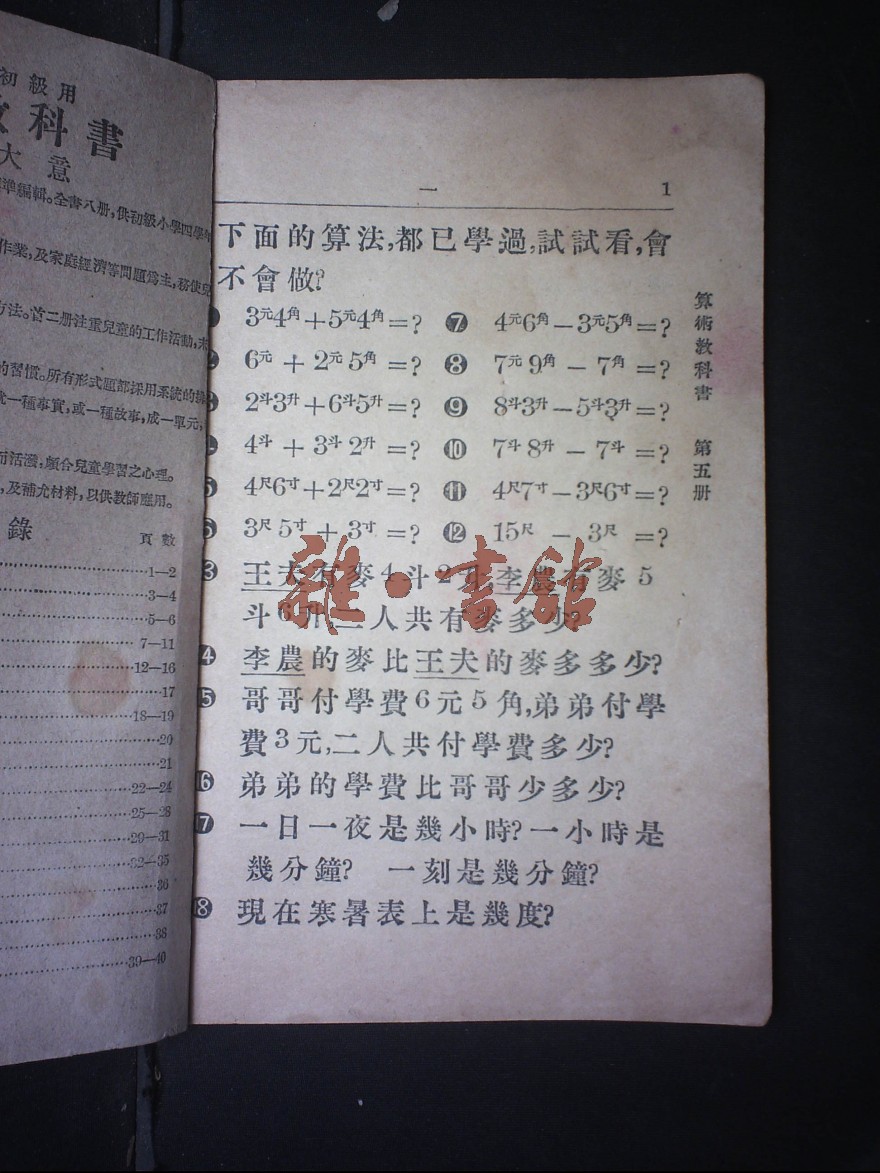 初級用
教科書
大意
準編輯。全書八册，供初級小學四學年
作業，及家庭經濟等問題爲主，務使兒
方法。首二册注重兒童的工作活動，末
的習慣。所有形式題都採用系統的
一種事實，或一種故事，成一單元，
而活潑，頗合兒童學習之心理。
及補充材料，以供教師應用。
錄 頁數
1—2
3—4
5—6
7—11
12—16
17
18—19
20
21
22—24
25—28
29—31
32—35
36
37
38
39—40
一 1
下面的算法，都已學過，試試看，會
不會做？
3元4角+5元4角=? ❼ 4元6角-3元5角=?
6元 + 2元5角=? ❽ 7元9角 - 7角=?
2斗3升+6斗5升=? ❾ 8斗3升-5斗3升=?
4斗 + 3斗2升=? ❿ 7斗8升 - 7斗=?
4尺6寸+2尺2寸=? ⓫ 4尺7寸-3尺6寸=?
3尺5寸 + 3寸=? ⓬ 15尺 - 3尺=?
3 王夫有麥4斗2升，李農有麥5
斗6升，二人共有麥多少？
4 李農的麥比王夫的麥多多少？
5 哥哥付學費6元5角，弟弟付學
費3元，二人共付學費多少？
16 弟弟的學費比哥哥少多少？
17 一日一夜是幾小時？一小時是
幾分鐘？ 一刻是幾分鐘？
18 現在寒暑表上是幾度？
算術教科書 第五册
雜·書館